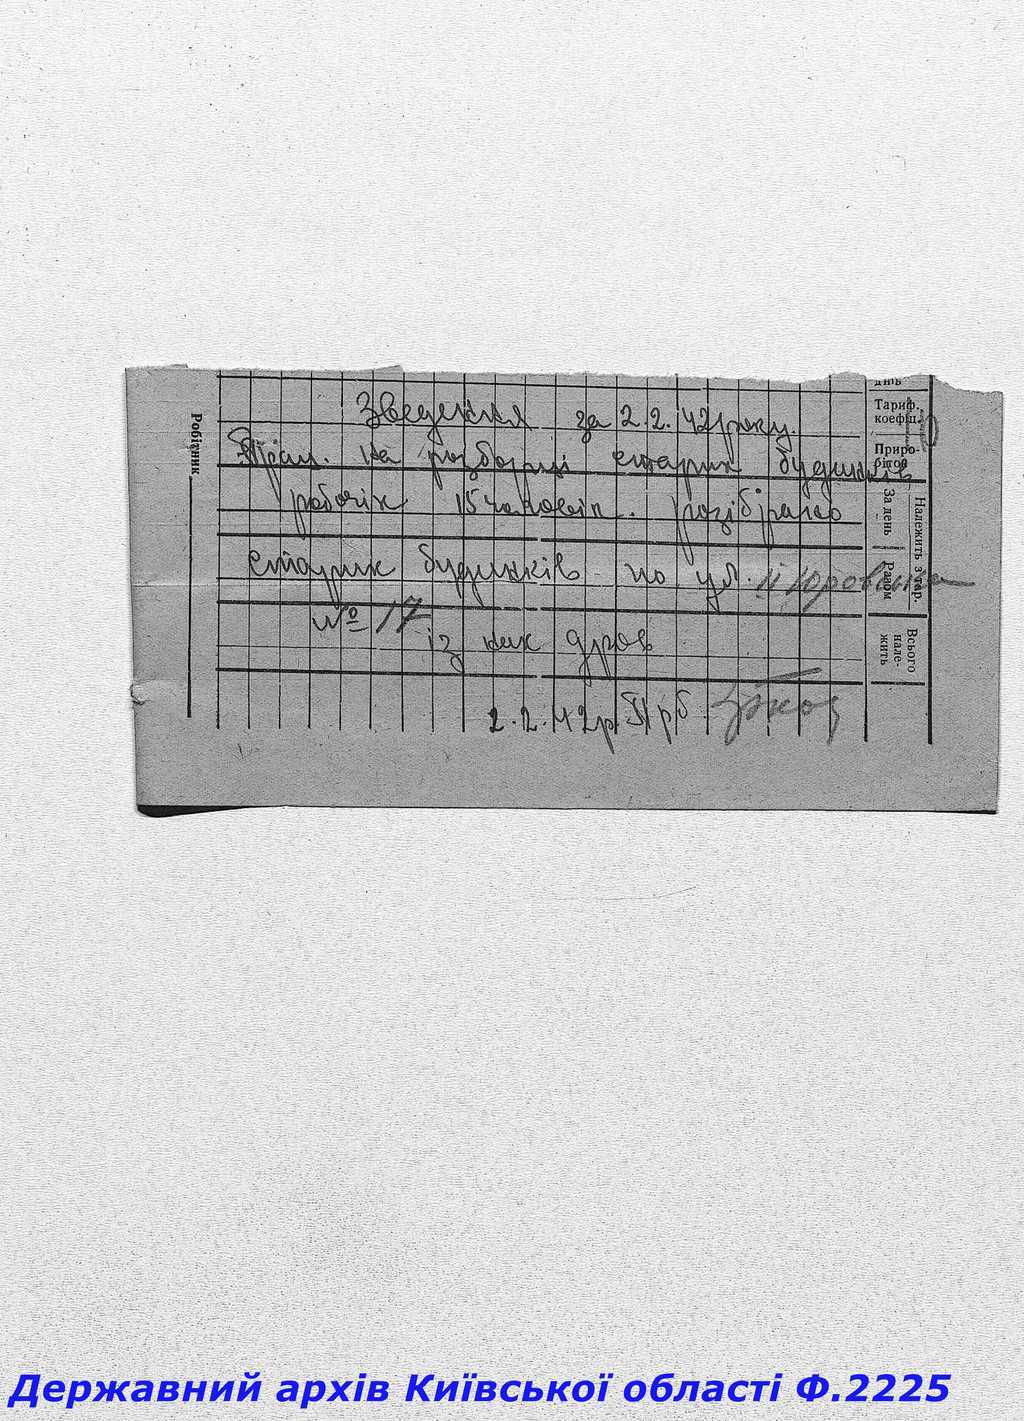 днів
Тариф. коефіц.
Приро- бітсв
За день
Разом
Належить з тар.
Всього нале- жить
Робітник
Зведення за 2.2.42 року.
Прац. на розборці старих будинків
робочіх 15 чоловік. розібрано
старих будинків по ул.
№ 17
із них дров
2.2.42р.
Державний архів Київської області Ф.2225